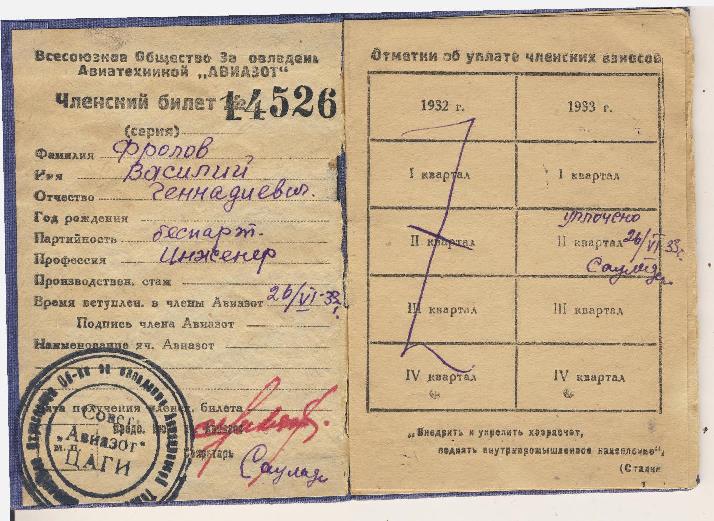 Всесоюзное Общество За овладень
Авиатехникой „АВИАЗОТ"
Членский билет № 14526
(серия)
Фамилия Фролов
Имя Василий
Отчество Геннадиевич.
Год рождения
Партийность беспарт.
Профессия Инженер
Производствен. стаж
Время вступлен. в члены Авиазот 26/VI-33 г.
Подпись члена Авиазот
Наименование яч. Авиазот
Дата получения членск. билета
Секретарь
Совет
"Авиазот"
м.п.
ЦАГИ
Отметки об уплате членских взносов
1932 г. 1933 г.
I квартал I квартал
уплочено
II квартал II квартал 26/VI-33г.
III квартал III квартал
IV квартал IV квартал
„Внедрить и укрепить хозрасчет,
поднять внутрипромышленное накопление",
(Сталин